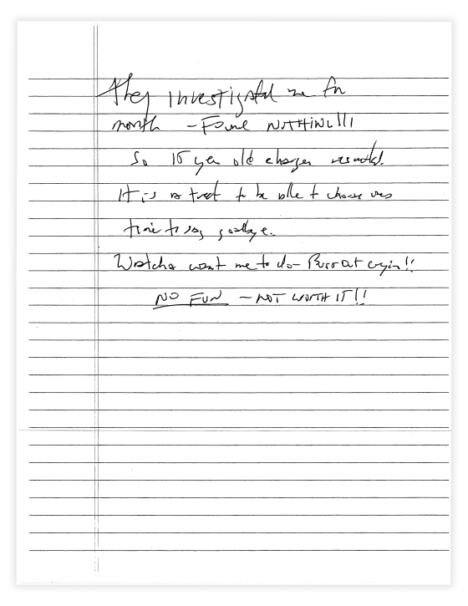 They investigated me for
month - Found NOTHING!!!
So year old charges
It is a treat to be able to choose ones
time to say goodbye.
Watcha want me to do - Burst out cryin!!
NO FUN - NOT WORTH IT!!